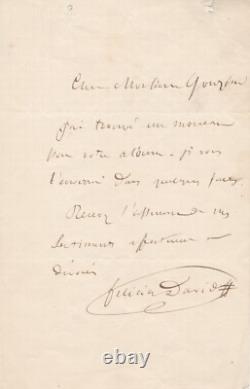 Cher Monsieur
j'ai trouvé un morceau
pour votre album. je vous
l'enverrai dans quelques jours.
Recevez l'assurance de mes
sentiments affectueux et
dévoués
félicien David